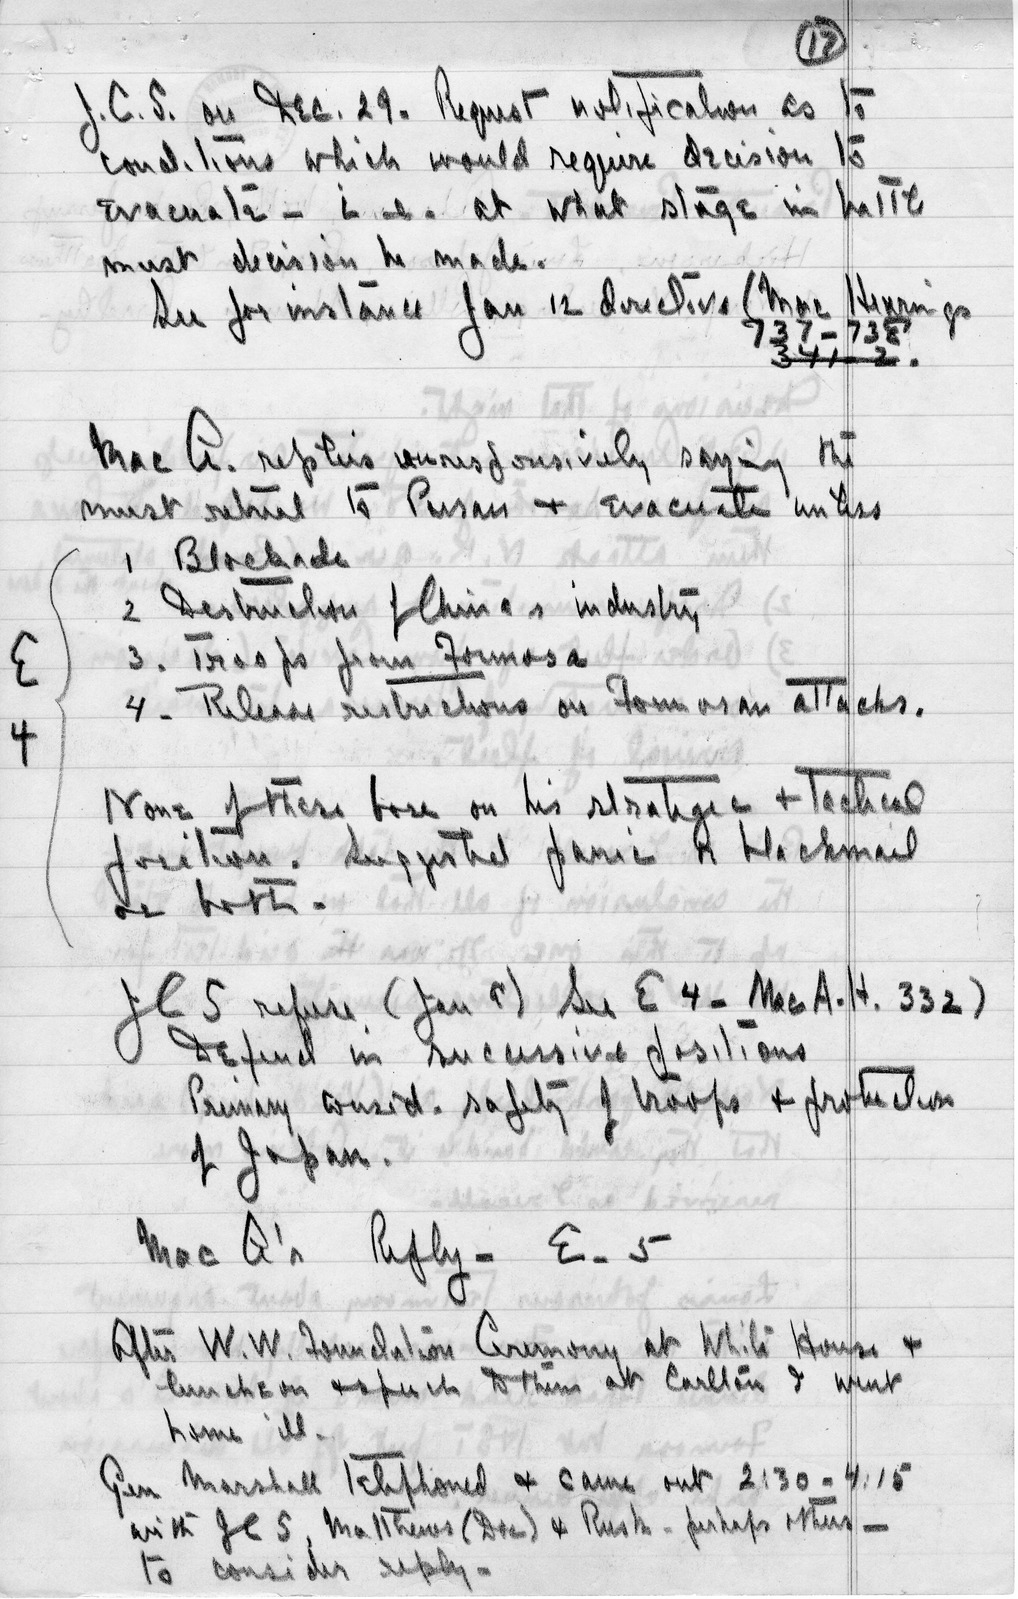 17
J.C.S. on Dec. 29. Request notification as to
conditions which would require decision to
evacuate - i.e. at what stage in battle
must decision be made.
See for instance Jan 12 directive (Mac Hearings
737-738
341-2.
Mac A. replies unresponsively saying the
must retreat to Pusan + evacuate unless
1 Blockade
2 Destruction of China's industry
3. Troops from Formosa
4 - Release restrictions on Formosan attacks.
E
4
None of these bore on his strategic + tactical
position. Suggested panic or blackmail
or both -
JCS refuse. (Jan 9) See E 4 - Mac A. H. 332)
Defend in successive positions
Primary consid. safety of troops + protection
of Japan.
Mac A's Reply - E - 5
After W.W. Foundation Ceremony at White House +
luncheon + speech to them at Carlton I went
home ill.
Gen Marshall telephoned + came out 2:30 - 4:15
with JCS, Matthews (Doc) + Rusk - perhaps others -
to consider reply -